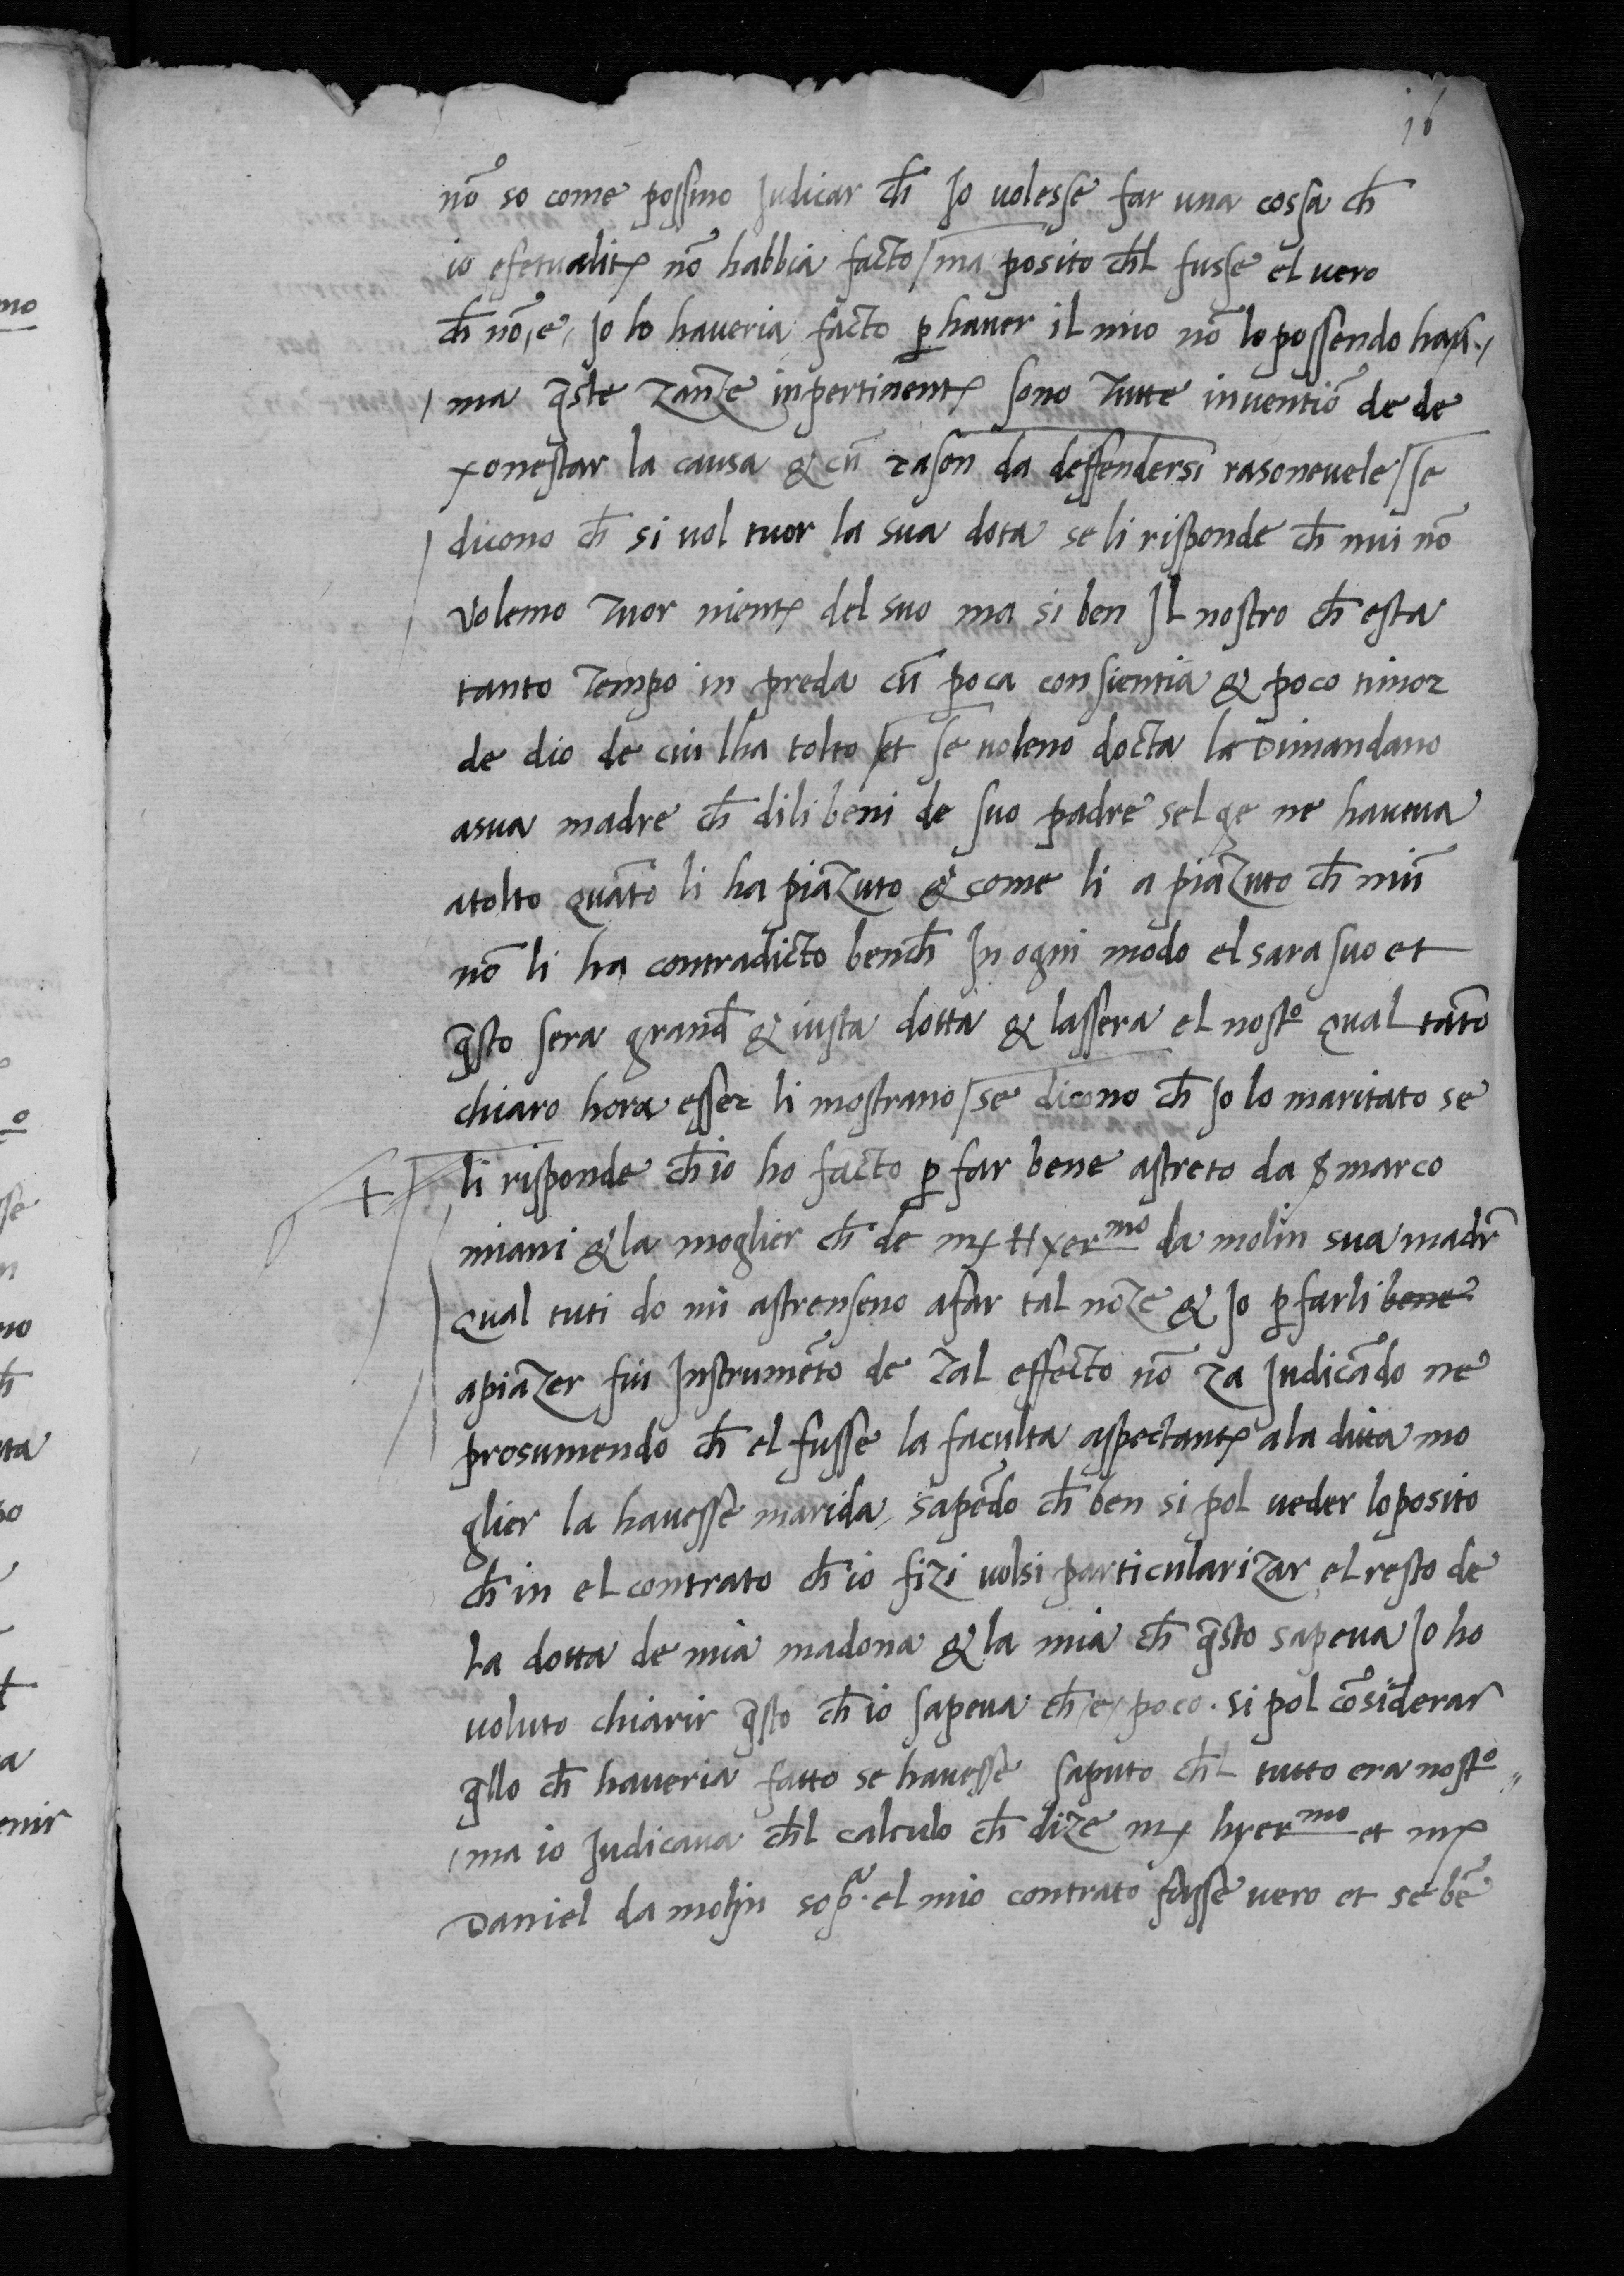 16
nō so come possino Judicar ch̄ Jo uolesse far una cossa ch̄
io efetualit~ nō habbia facto / ma posito ch̄l fusse el uero
ch̄ nō, e, Jo lo haueria facto ꝑ hauer il mio nō lo possendo hau.,
/ ma q̄ste zanze inpertinent~ sono tutte inuentiō de de
xonestar la causa & cū rason da deffendersi rasoneuele / se
dicono ch̄ si uol tuor la sua dota se li risponde ch̄ nui nō
volemo tuor nient~ del suo ma si ben Il nostro ch̄ esta
tanto tempo in preda cū poca consientia & poco timor
de dio de cui lha tolto / et se uoleno docta la Dimandano
asua madre ch̄ di li beni de suo padre sel ge ne haueua
atolto quāto li ha piāzuto & come li a piāzuto ch̄ niū
nō li ha contradicto bench̄ In ogni modo el sara suo et
q̄sto sera grand̄ & iusta dotta & lassera el nost° qual tāto
chiaro hora esser li mostrano / se dicono ch̄ Jo lo maritato se
+ li risponde ch̄ io ho facto ꝑ far bene astreto da s̄ marco
miani & la moglier ch̄ de m~ Hyerᵐᵒ da molin sua madr̄
qual tuti do mi astrenseno afar tal nōze & Jo ꝑ farli bene
apiazer fui Instrumēto de tal effecto nō za Judicādo ne
prosumendo ch̄ el fusse la faculta aspectant~ ala ditta mo
glier la hauesse marida, sapēdo ch̄ ben si pol ueder lo posito
ch̄ in el contrato ch̄ io fizi uolsi particularizar el resto de
la dotta de mia madona & la mia ch̄ q̄sto sapeua Jo ho
uoluto chiarir q̄sto ch̄ io sapeua ch̄, e, poco. si pol cōsiderar
q̄llo ch̄ haueria fatto se hauesse saputo ch̄l tutto era nost° "
/ ma io Judicaua ch̄l calculo ch̄ dize m~ hyerᵐᵒ et m~
Daniel da molin sop̄ᵃ. el mio contrato fusse uero et se bē